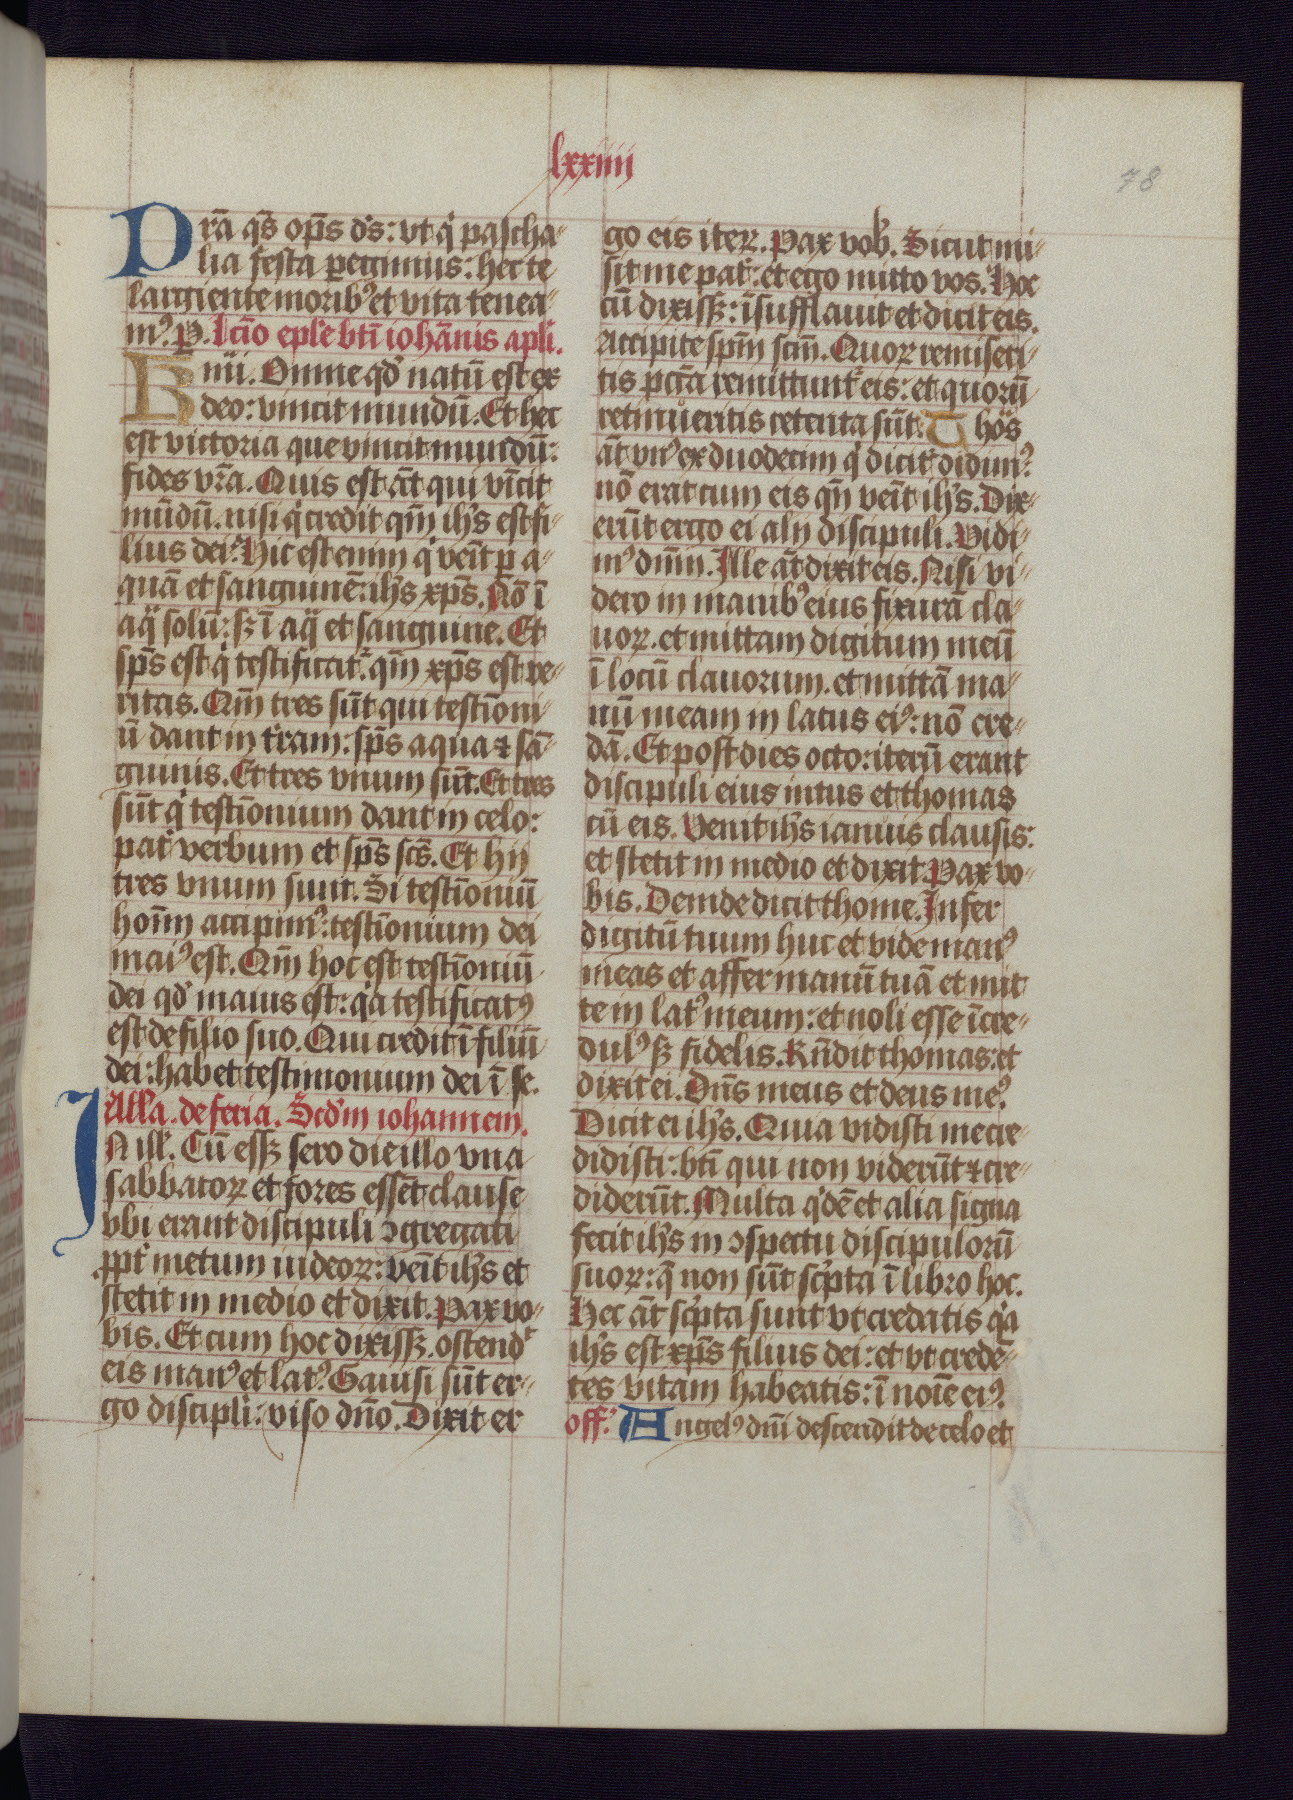 lxxiiii
78
Prā qs̄ om̄ps ds̄: vt qͥ pascha-
lia festa peregimus: hec te
largiente morib⁹ et vita tenea-
m⁹. p. Lcīo eple bti iohānis apli.
Kmi. Omne qd̓ natū est ex
deo: vincit mundū. Et hec
est victoria que vincit mundū:
fides vrā. Quis est āt qui vīcit
mūdū. nisi qͥ credit qm̄ ihs̄ est fi-
lius dei? Hic est enim qͥ venīt p a-
quā et sanguinē: ihs̄ xps̄. Nō ī
aqͣ solū: sꝫ ī aqͣ et sanguine. Et
sps̄ est qͥ testificat̉: qm̄ xps̄ est ve-
ritas. Qm̄ tres sūt qui testīoni-
ū dant in t̉ram: sps̄ aqua ⁊ sā-
guinis. Et tres vnum sūt. Et tres
sūt qͥ testīonium dant in celo:
pat̉ verbum et sps̄ scs̄. Et hij
tres vnum sunt. Si testīoniū
hoīm accipim⁹: testīonium dei
mai⁹ est. Qm̄ hoc est testīoniū
dei qd̓ maius est: qͥa testificat⁹
est de filio suo. Qui credit ī filiū
dei: habet testimonium dei ī se.
Alla. de feria. Scd̓m iohannem.
IN ill̓. Cū essꝫ sero die illo vna
sabbatoꝝ et fores essēt clause
vbi erant discipuli ꝯgregati
ꝓpt̉ metum iudeoꝝ: venīt ihs̄ et
stetit in medio et dixit. Pax vo-
bis. Et cum hoc dixissꝫ. ostend̓t
eis man⁹ et lat⁹. Gauisi sūt er-
go discipli: viso dn̄o. Dixit er
go eis iteꝝ. Pax vob̓. Sicut mi-
sit me pat̉: et ego mitto vos. Hoc
cū dixissꝫ: īsufflauit et dicit eis.
Accipite spm̄ scm̄. Quoꝝ remiseri-
tis pctā remittunt̉ eis: et quorū
retinueritis retenta sūt. Thos
āt vn⁹ ex duodecim qͥ dicit̉ didim⁹.
nō erat cum eis qn̄ venīt ihs̄. Dix-
erūt ergo ei alij discipuli. Vidi-
m⁹ dnm̄. Ille āt dixit eis. Nisi vi-
dero in manib⁹ eius fixurā cla-
uoꝝ. et mittam digitum meū
ī locū clauorum. et mittā ma-
nū meam in latus ei⁹: nō cre-
dā. Et post dies octo: iterū erant
discipuli eius intus et thomas
cū eis. Venit ihs̄ ianuis clausis:
et stetit in medio et dixit. Pax vo-
bis. Deinde dicit thome. Infer
digitū tuum huc et vide man⁹
meas et affer manū tuā et mit
te in lat⁹ meum: et noli esse īcre-
dul⁹ sꝫ fidelis. Rn̄dit thomas: et
dixit ei. Dn̄s meus et deus me⁹.
Dicit ei ihs̄. Quia vidisti me cre-
didisti: bti qui non viderūt ⁊ cre-
diderūt. Multa qͥdē et alia signa
fecit ihs̄ in ꝯspectu discipulorū
suoꝝ: q̄ non sūt sc̉pta ī libro hoc.
Hec āt sc̉pta sunt vt credatis qͥa
ihs̄ est xps̄ filius dei: et vt credē-
tes vitam habeatis: ī noīe ei⁹.
off. Angel⁹ dn̄i descendit de celo et